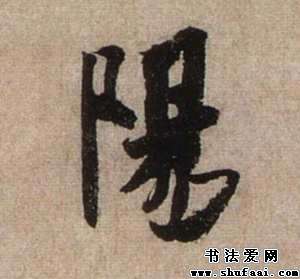 陽
书法爱网
www.shufaai.com